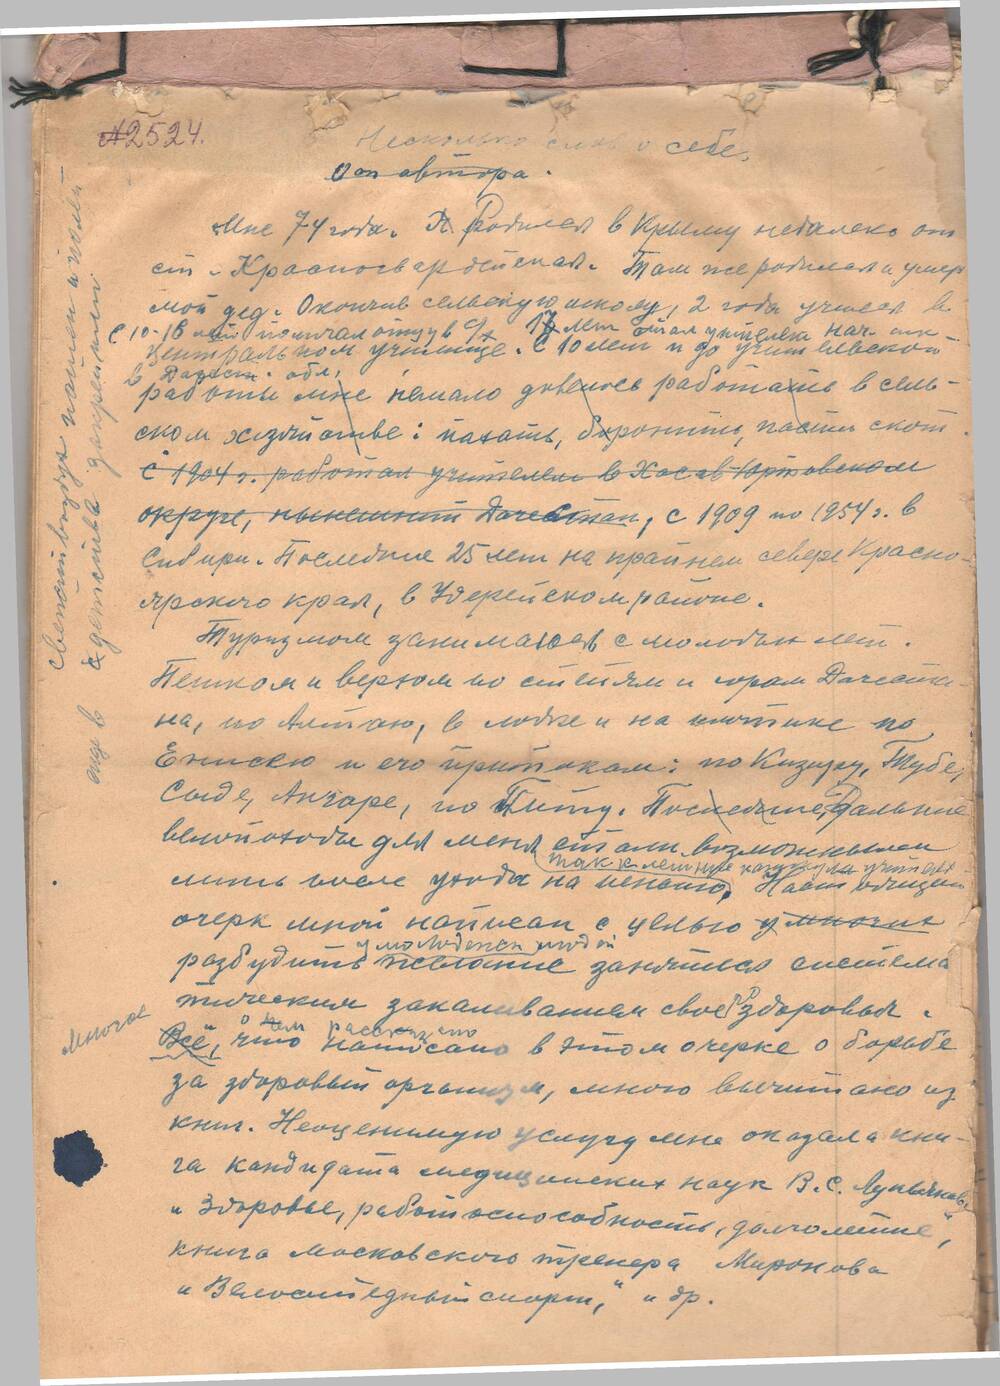 №2524.
Несколько слов о себе.
От автора.
Мне 74 года. Я Родился в Крыму недалеко от
ст. Красногвардейская. Там же родился и умер
мой дед. Окончив сельскую школу, 2 года учился в
С 10-16 лет помогал отцу в с/х 17 лет стал учителем нач. шк
центральном училище. С 10 лет и до учительской
в Дагест. обл.
работы мне немало довелось работать в сель-
ском хозяйстве: пахать, боронить, пасти скот.
С 1904 г. работал учителем в Хасав-Юртовском
округе, нынешний Дагестан, с 1909 по 1954 г. в
Сибири. Последние 25 лет на крайнем севере Красно-
ярского края, в Удерейском районе.
Туризмом занимаюсь с молодых лет.
Пешком и верхом по степям и горам Дагеста-
на, по Алтаю, в лодке и на плотике по
Енисею и его притокам: по Кизиру, Тубе,
Сыде, Ангаре, по Питу. Последние, Дальние
велопоходы для меня стали возможными
так к летние каникулы учителя
лишь после ухода на пенсию. Настоящий
очерк мной написан с целью у многих
у молодежи людей
разбудить желание заняться система
тическим закаливанием своего здоровья.
многое
о чем рассказано
Всё, что написано в этом очерке о борьбе
за здоровый организм, мною вычитано из
книг. Неоценимую услугу мне оказала кни-
га кандидата медицинских наук В.С. Лукьянова
„Здоровье, работоспособность, долголетие",
книга московского тренера Миронова
„Велосипедный спорт," и др.
свежий воздух пашен и полей
еще в детстве закрепили